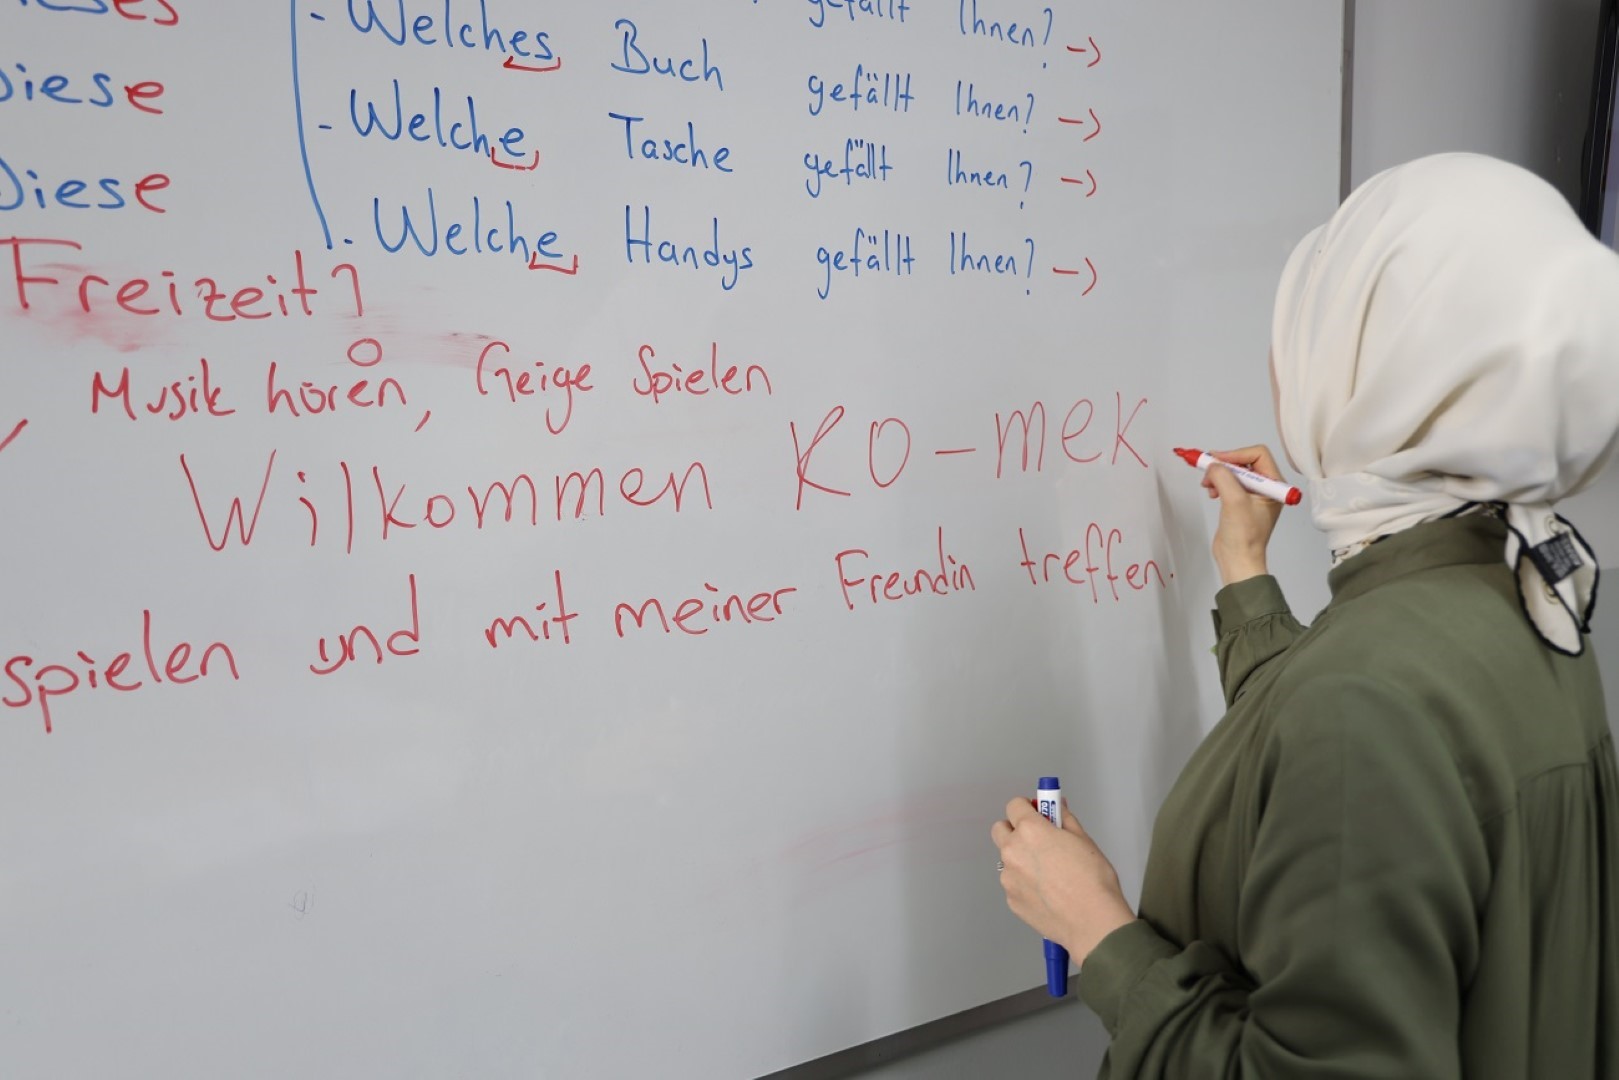 es
- Welches Buch gefällt Ihnen? ->
Diese
- Welche Tasche gefällt Ihnen? ->
Diese
- Welche Handys gefällt Ihnen? ->
gefällt Ihnen? ->
Freizeit?
Musik hören, Geige Spielen
Wilkommen KO-mek
spielen und mit meiner Freundin treffen.